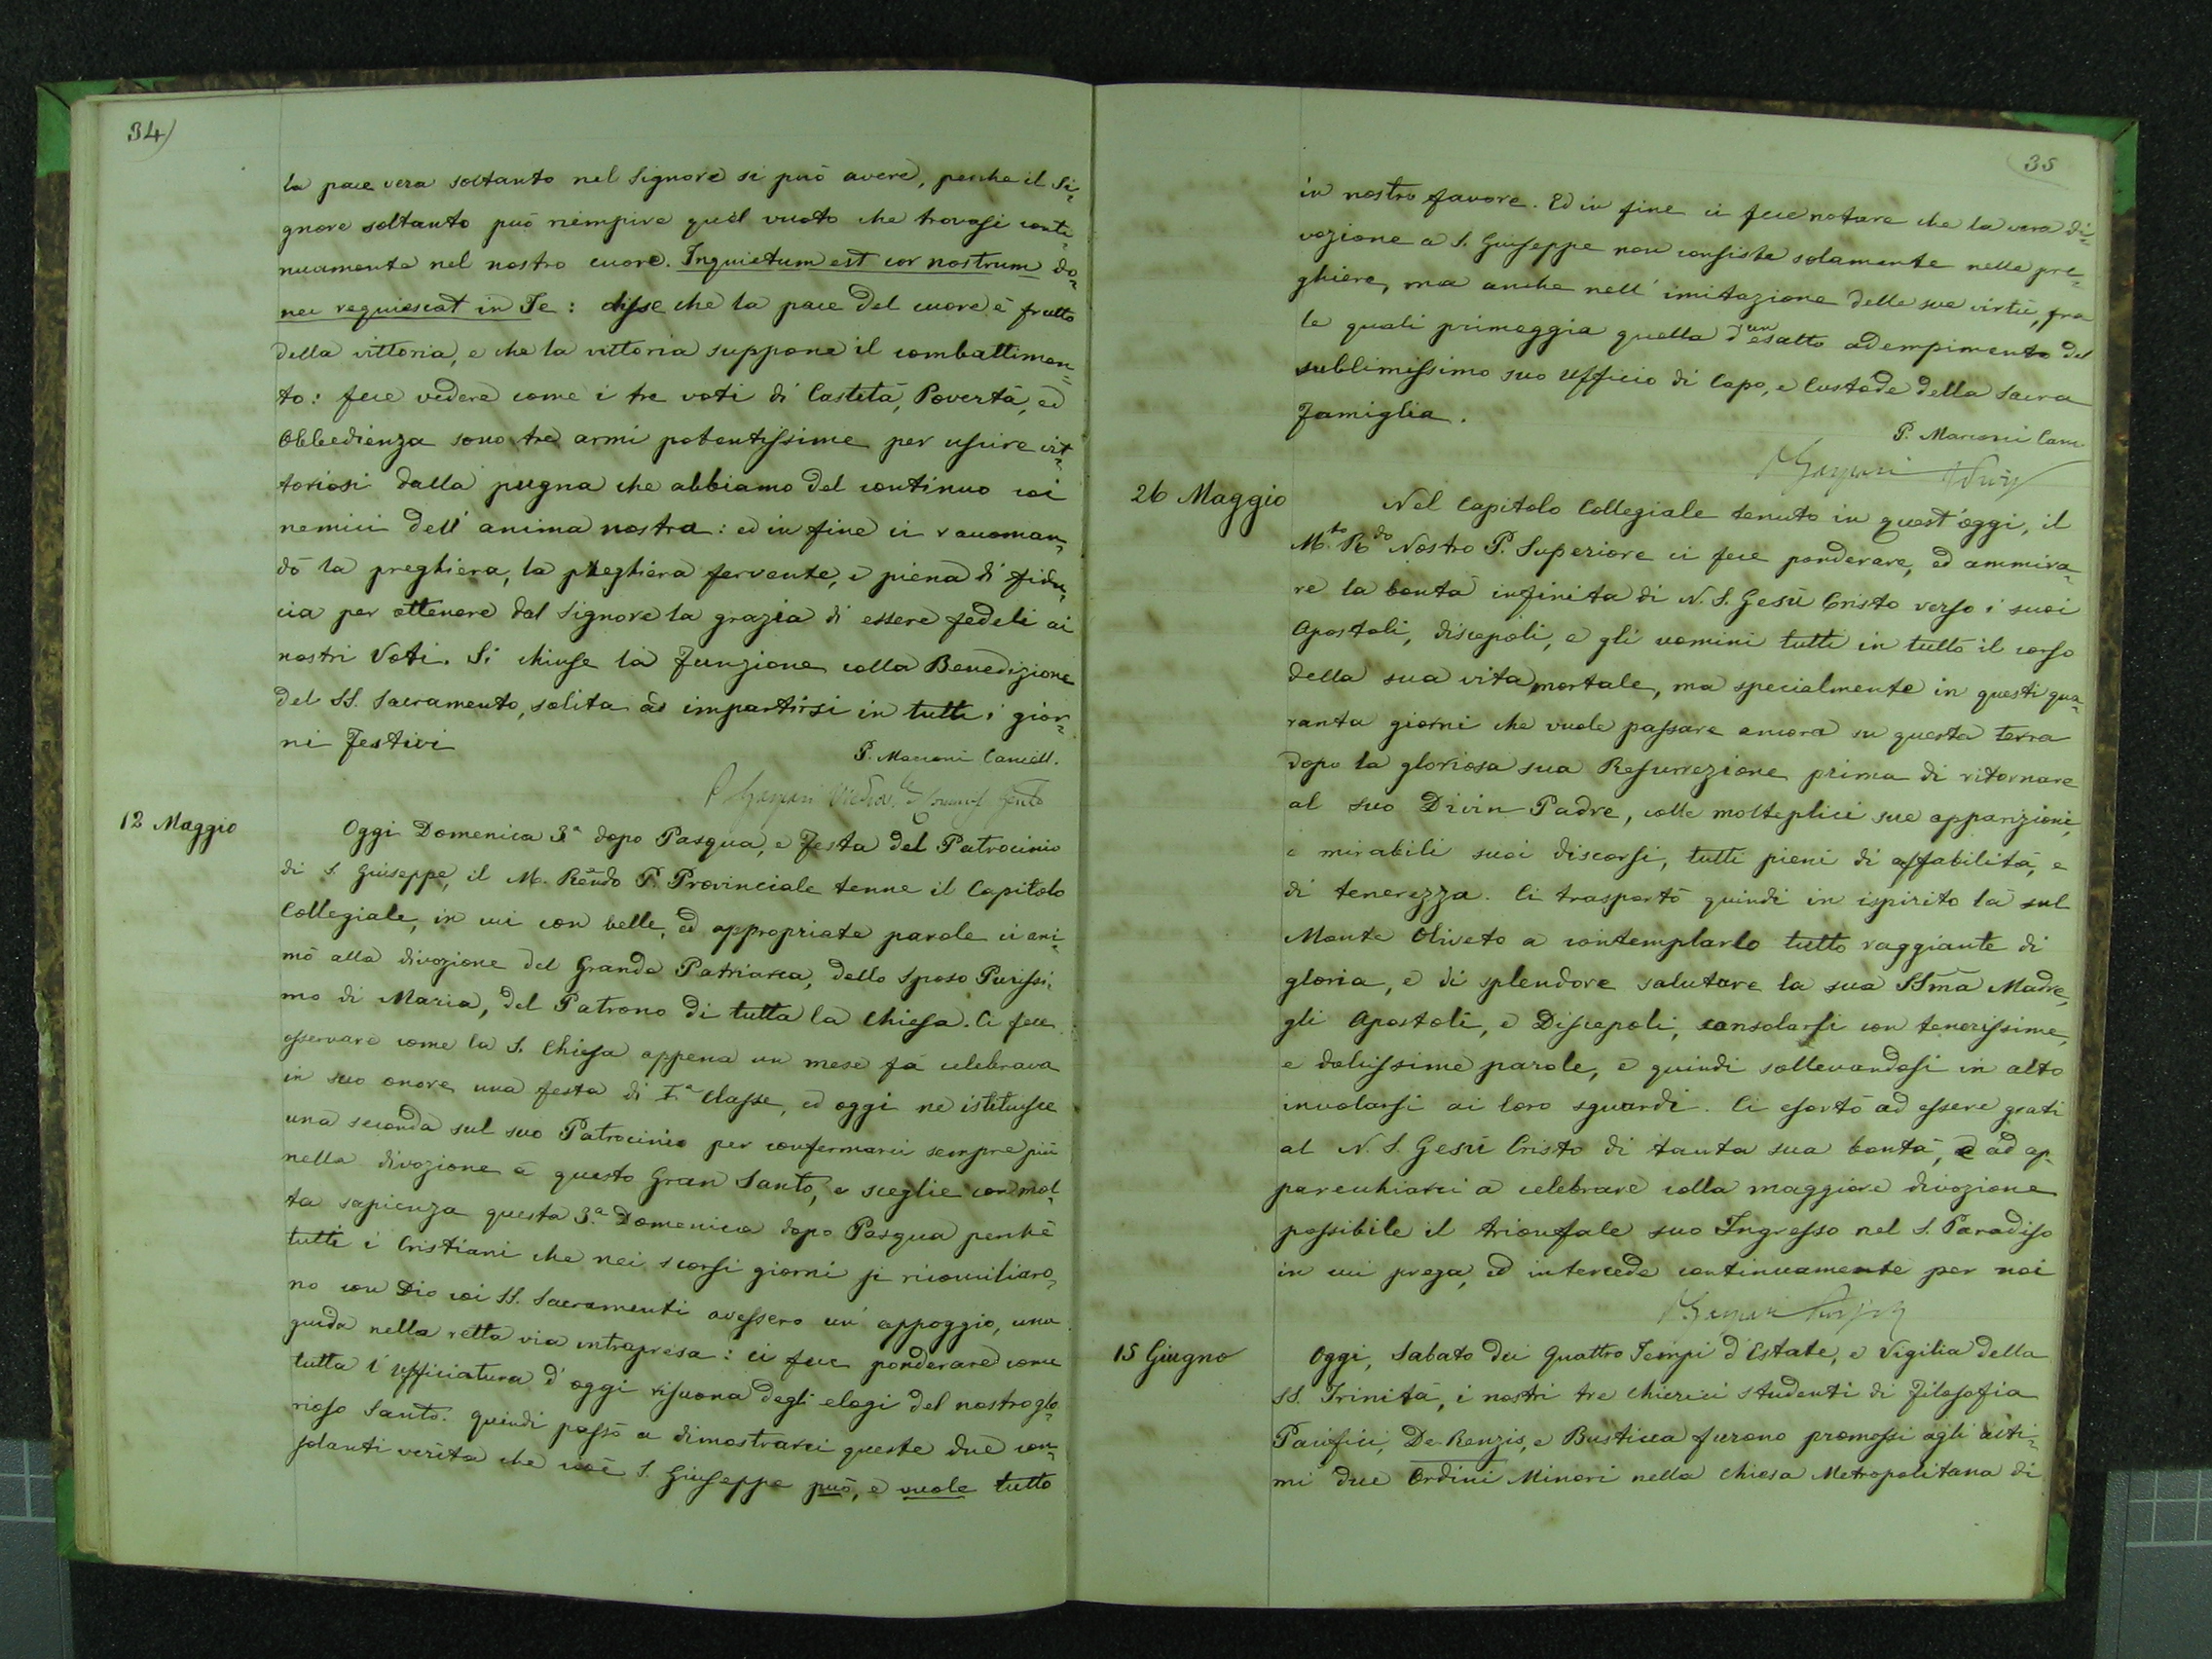 34)
la pace vera soltanto nel Signore si può avere, perchè il Si=
gnore soltanto può riempire quel vuoto che trovasi conti=
nuamente nel nostro cuore. Inquietum est cor nostrum do=
nec requiescat in Te: disse che la pace del cuore è frutto
della vittoria, e che la vittoria suppone il combattimen=
to: fece vedere come i tre voti di Castità, Povertà, ed
Obbedienza sono tre armi potentissime per uscire vit=
toriosi dalla pugna che abbiamo del continuo coi
nemici dell'anima nostra: ed in fine ci raccoman=
dò la preghiera, la preghiera fervente, e piena di fidu=
cia per ottenere dal Signore la grazia di essere fedeli ai
nostri Voti. Si chiuse la Funzione colla Benedizione
del SS. Sacramento, solita ad impartirsi in tutti i gior=
ni Festivi
P. Marconi Cancell.
12 Maggio
Oggi Domenica 3.a dopo Pasqua, e Festa del Patrocinio
di S. Giuseppe, il M. Rendo P. Provinciale tenne il Capitolo
Collegiale, in cui con belle, ed appropriate parole ci ani=
mò alla divozione del Grande Patriarca, dello Sposo Purissi=
mo di Maria, del Patrono di tutta la Chiesa. Ci fece
osservare come la S. Chiesa appena un mese fa celebrava
in suo onore una festa di I.a classe, ed oggi ne istituisce
una seconda sul suo Patrocinio per confermarci sempre più
nella divozione a questo Gran Santo, e sceglie con mol=
ta sapienza questa 3.a Domenica dopo Pasqua perchè
tutti i Cristiani che nei scorsi giorni si riconciliaro=
no con Dio coi SS. Sacramenti avessero un'appoggio, una
guida nella retta via intrapresa: ci fece ponderare come
tutta l'ufficiatura d'oggi risuona degli elogi del nostro glo=
rioso Santo. Quindi passò a dimostrarci queste due con=
solanti verità che cioè S. Giuseppe può, e vuole tutto
35
in nostro favore. Ed in fine ci fece notare che la vera di=
vozione a S. Giuseppe non consiste solamente nelle pre=
ghiere, ma anche nell'imitazione delle sue virtù, fra
le quali primeggia quella d'un esatto adempimento del
sublimissimo suo Ufficio di Capo, e Custode della Sacra
Famiglia.
P. Marconi Canc.
26 Maggio
Nel Capitolo Collegiale tenuto in quest'oggi, il
M.to R.do Nostro P. Superiore ci fece ponderare, ed ammira=
re la bontà infinita di N. S. Gesù Cristo verso i suoi
Apostoli, discepoli, e gli uomini tutti in tutto il corso
della sua vita mortale, ma specialmente in questi qua=
ranta giorni che vuole passare ancora su questa terra
dopo la gloriosa sua Resurrezione prima di ritornare
al suo Divin Padre, colle molteplici sue apparizioni,
e mirabili suoi discorsi, tutti pieni di affabilità, e
di tenerezza. Ci trasportò quindi in ispirito là sul
Monte Oliveto a contemplarlo tutto raggiante di
gloria, e di splendore salutare la sua SSma Madre,
gli Apostoli, e Discepoli, consolarsi con tenerissime,
e dolcissime parole, e quindi sollevandosi in alto
involarsi ai loro sguardi. Ci esortò ad essere grati
al N. S. Gesù Cristo di tanta sua bontà, e ad ap=
parecchiarci a celebrare colla maggiore divozione
possibile il trionfale suo Ingresso nel S. Paradiso
in cui prega, ed intercede continuamente per noi
15 Giugno
Oggi, Sabato dei Quattro Tempi d'Estate, e Vigilia della
SS. Trinità, i nostri tre Chierici studenti di Filosofia
Pacifici, De Renzis, e Bustica furono promossi agli ulti=
mi due Ordini Minori nella Chiesa Metropolitana di